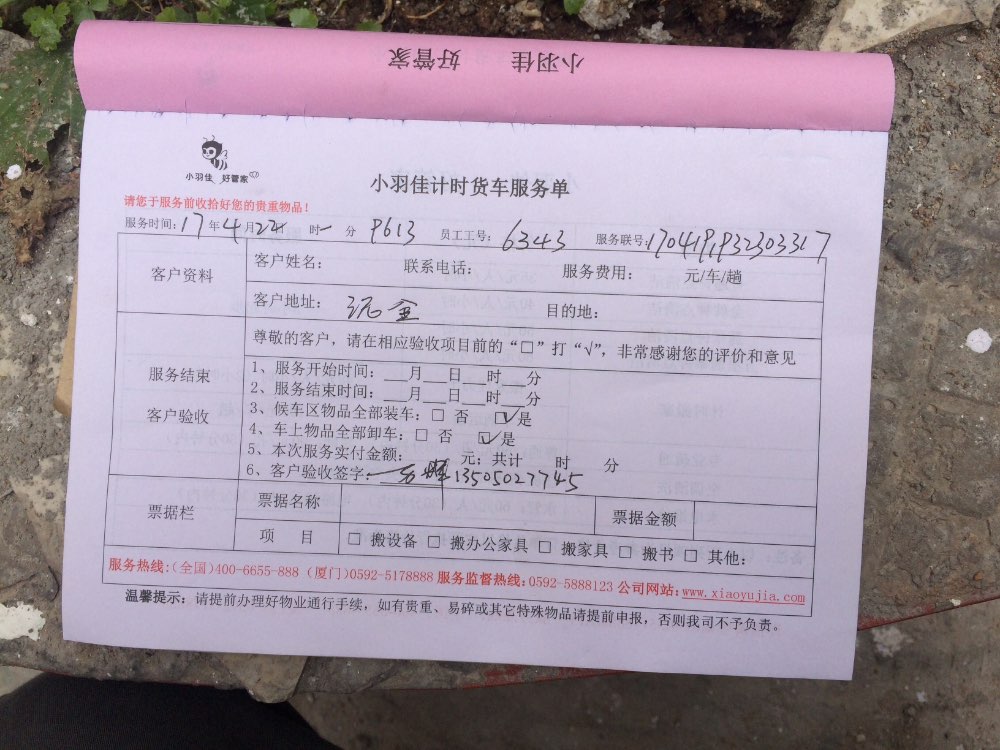 小羽佳 好管家
小羽佳 好管家
小羽佳计时货车服务单
请您于服务前收拾好您的贵重物品！
服务时间：17年4月22 时 分 P613 员工工号：6343 服务联号：170419193230 3317
客户资料
客户姓名： 联系电话： 服务费用： 元/车/趟
客户地址： 目的地：
服务结束
客户验收
尊敬的客户，请在相应验收项目前的“□”打“√”，非常感谢您的评价和意见
1、服务开始时间：__月__日__时__分
2、服务结束时间：__月__日__时__分
3、候车区物品全部装车：□ 否 ☑是
4、车上物品全部卸车：□ 否 ☑是
5、本次服务实付金额： 元；共计 时 分
6、客户验收签字： 13505027745
票据栏
票据名称 票据金额
项 目 □ 搬设备 □ 搬办公家具 □ 搬家具 □ 搬书 □ 其他：
服务热线：(全国)400-6655-888 (厦门)0592-5178888 服务监督热线：0592-5888123 公司网站：www.xiaoyujia.com
温馨提示：请提前办理好物业通行手续，如有贵重、易碎或其它特殊物品请提前申报，否则我司不予负责。